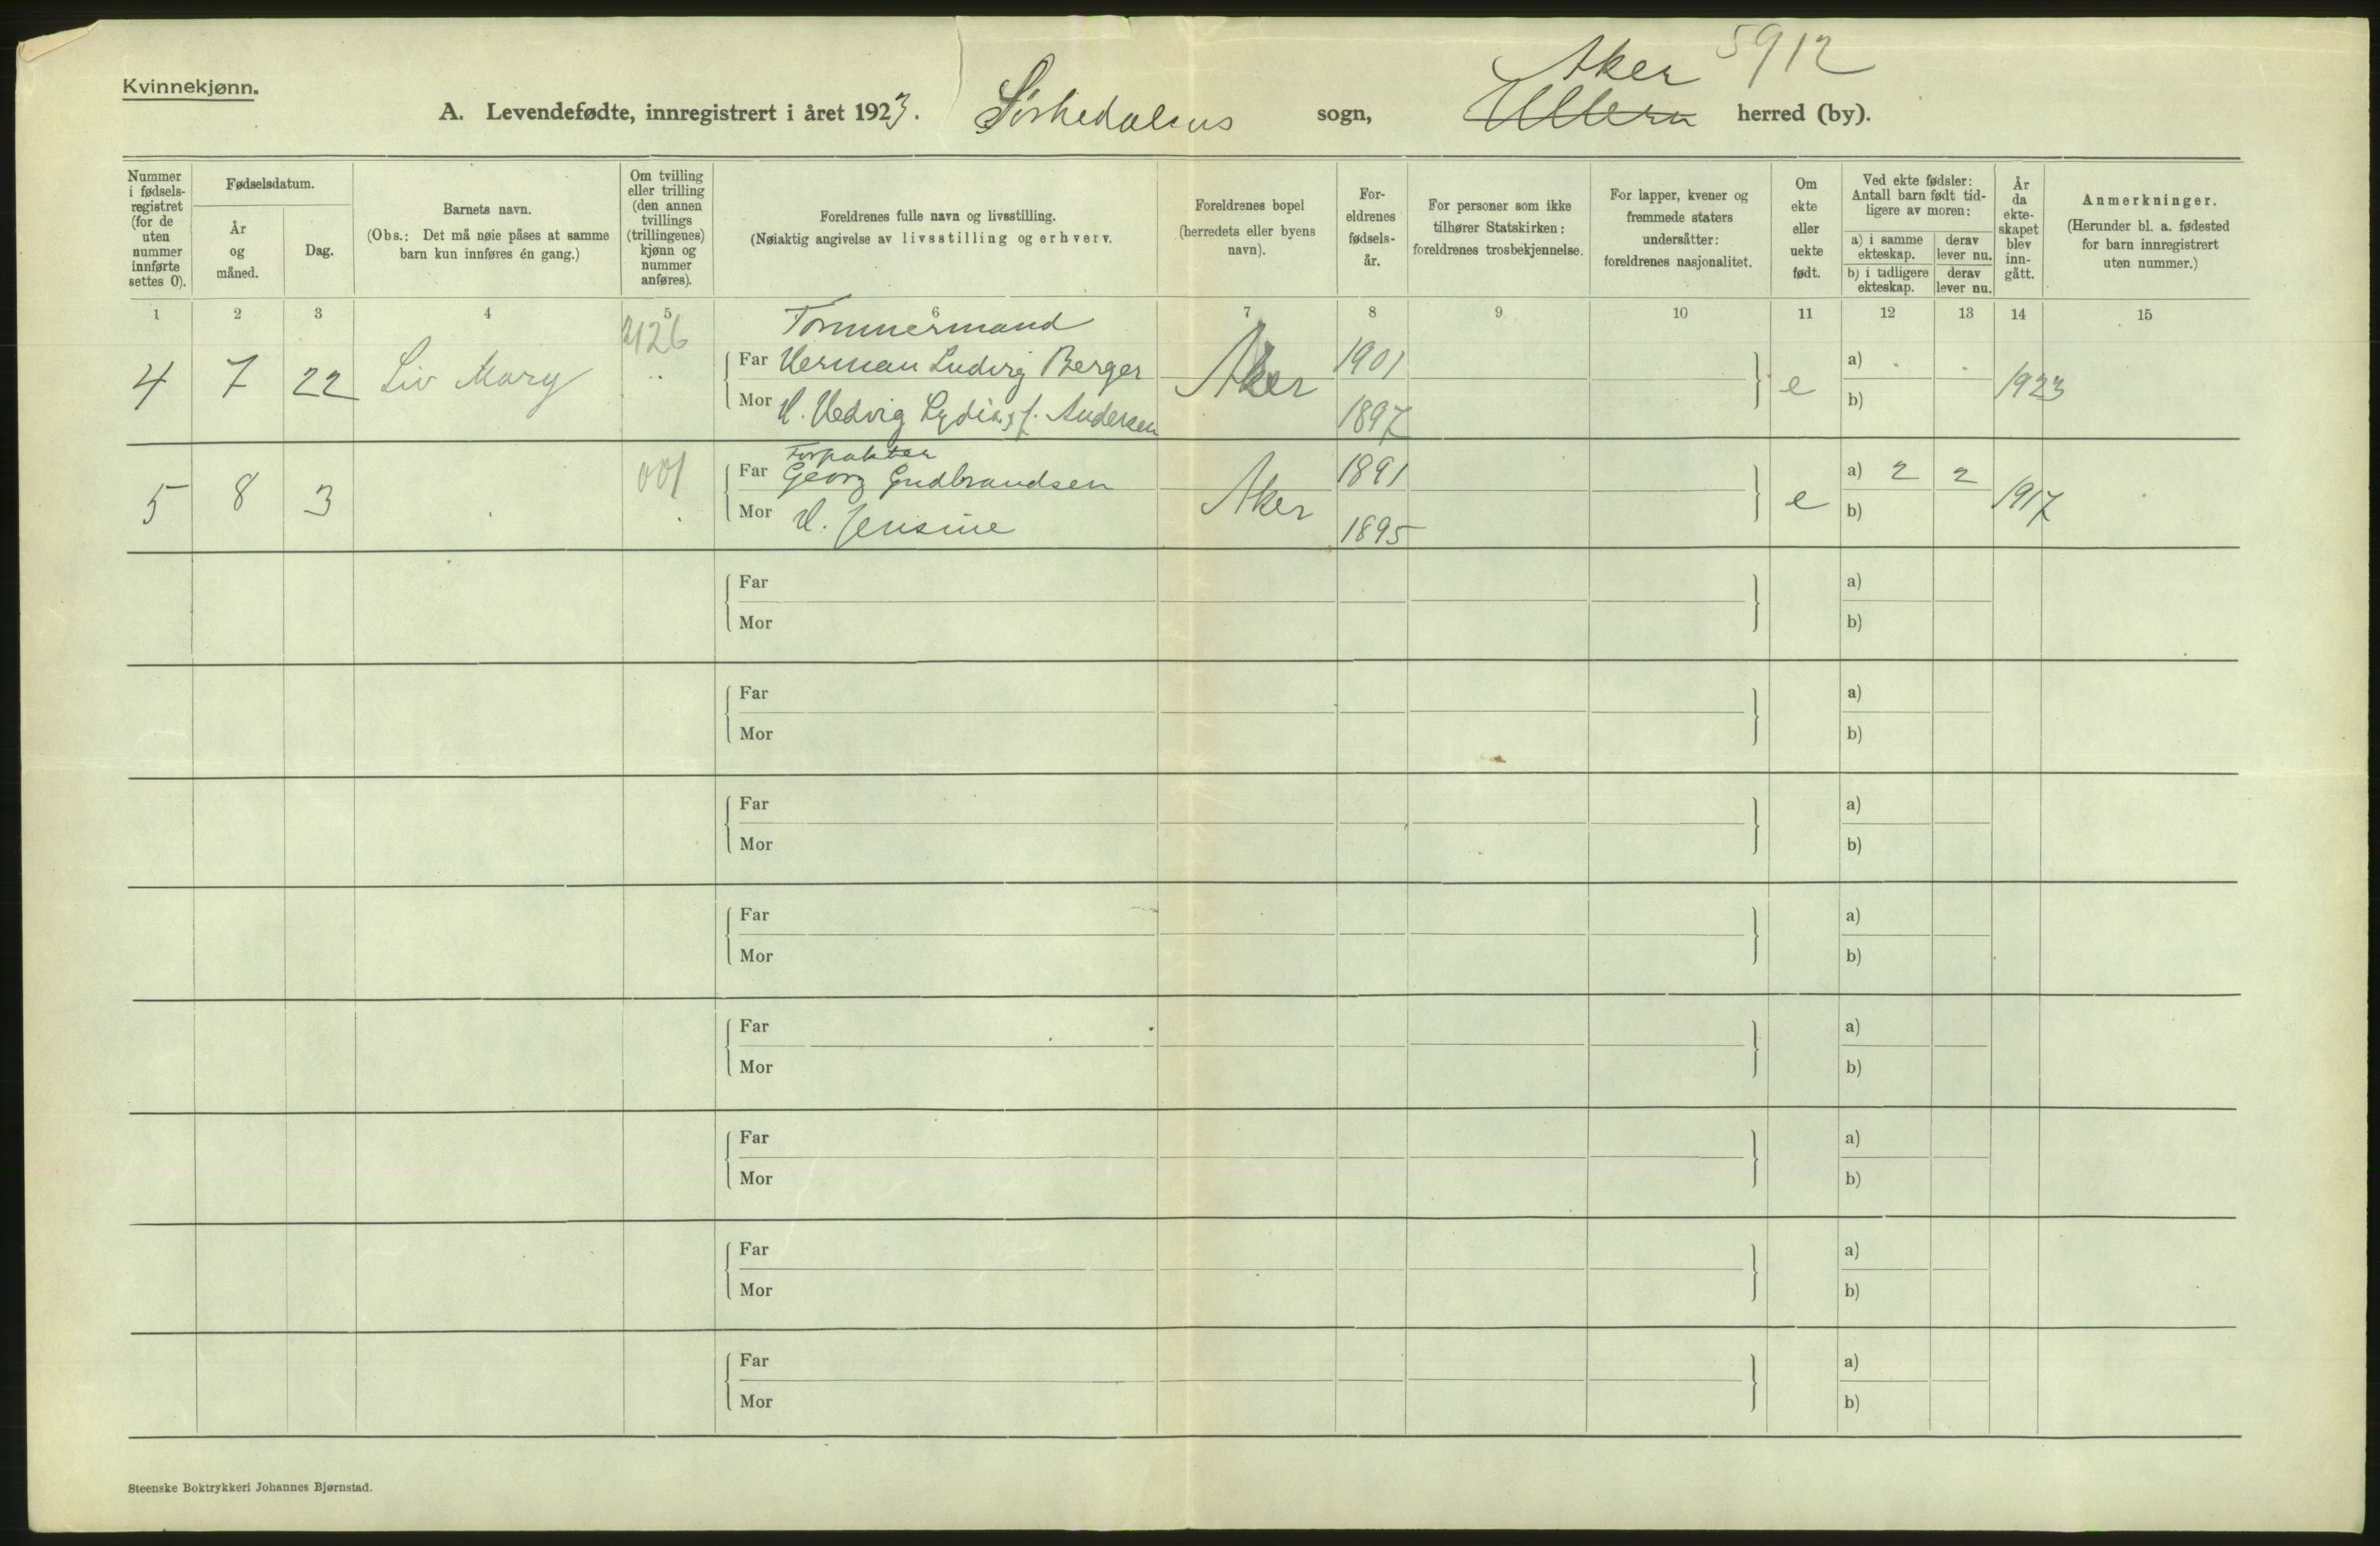 Kvinnekjønn.
Aker 5912
A. Levendefødte, innregistrert i året 1923. Sørkedalens sogn, Ullern herred (by).
Nummer i fødsels-registret (for de uten nummer innførte settes 0).
Fødselsdatum.
År og måned.
Dag.
Barnets navn.
(Obs.: Det må nøie påses at samme barn kun innføres én gang.)
Om tvilling eller trilling (den annen tvillings (trillingenes) kjønn og nummer anføres).
Foreldrenes fulle navn og livsstilling.
(Nøiaktig angivelse av livsstilling og erhverv.
Foreldrenes bopel (herredets eller byens navn).
For-eldrenes fødsels-år.
For personer som ikke tilhører Statskirken: foreldrenes trosbekjennelse.
For lapper, kvener og fremmede staters undersåtter: foreldrenes nasjonalitet.
Om ekte eller uekte født.
Ved ekte fødsler: Antall barn født tid-ligere av moren:
a) i samme ekteskap.
derav lever nu.
b) i tidligere ekteskap.
derav lever nu.
År da ekte-skapet blev inn-gått.
Anmerkninger.
(Herunder bl. a. fødested for barn innregistrert uten nummer.)
1 2 3 4 5 6 7 8 9 10 11 12 13 14 15
2126 Tømmermand
4 7 22 Liv Mary Far Herman Ludvig Berger Aker 1901 e a) 1923
Mor H. Hedvig Lydia, f. Andersen 1897 b)
001 Forpakter
5 8 3 Far Georg Gudbrandsen Aker 1891 e a) 2 2 1917
Mor H. Jensine 1895 b)
Far a)
Mor b)
Far a)
Mor b)
Far a)
Mor b)
Far a)
Mor b)
Far a)
Mor b)
Far a)
Mor b)
Far a)
Mor b)
Far a)
Mor b)
Steenske Boktrykkeri Johannes Bjørnstad.